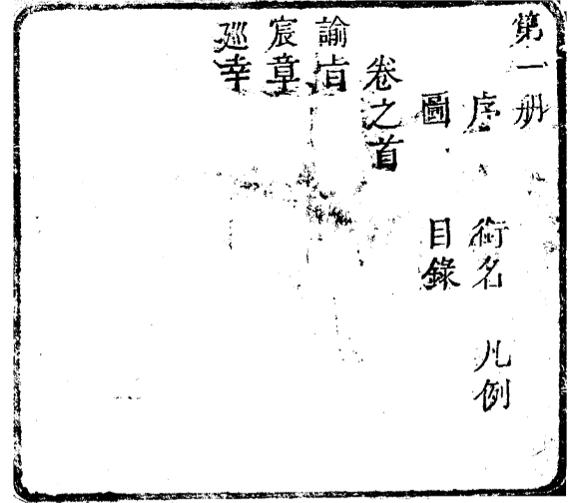 第一册
序 銜名 凡例
圖 目錄
卷之首
諭旨
宸章
廵幸